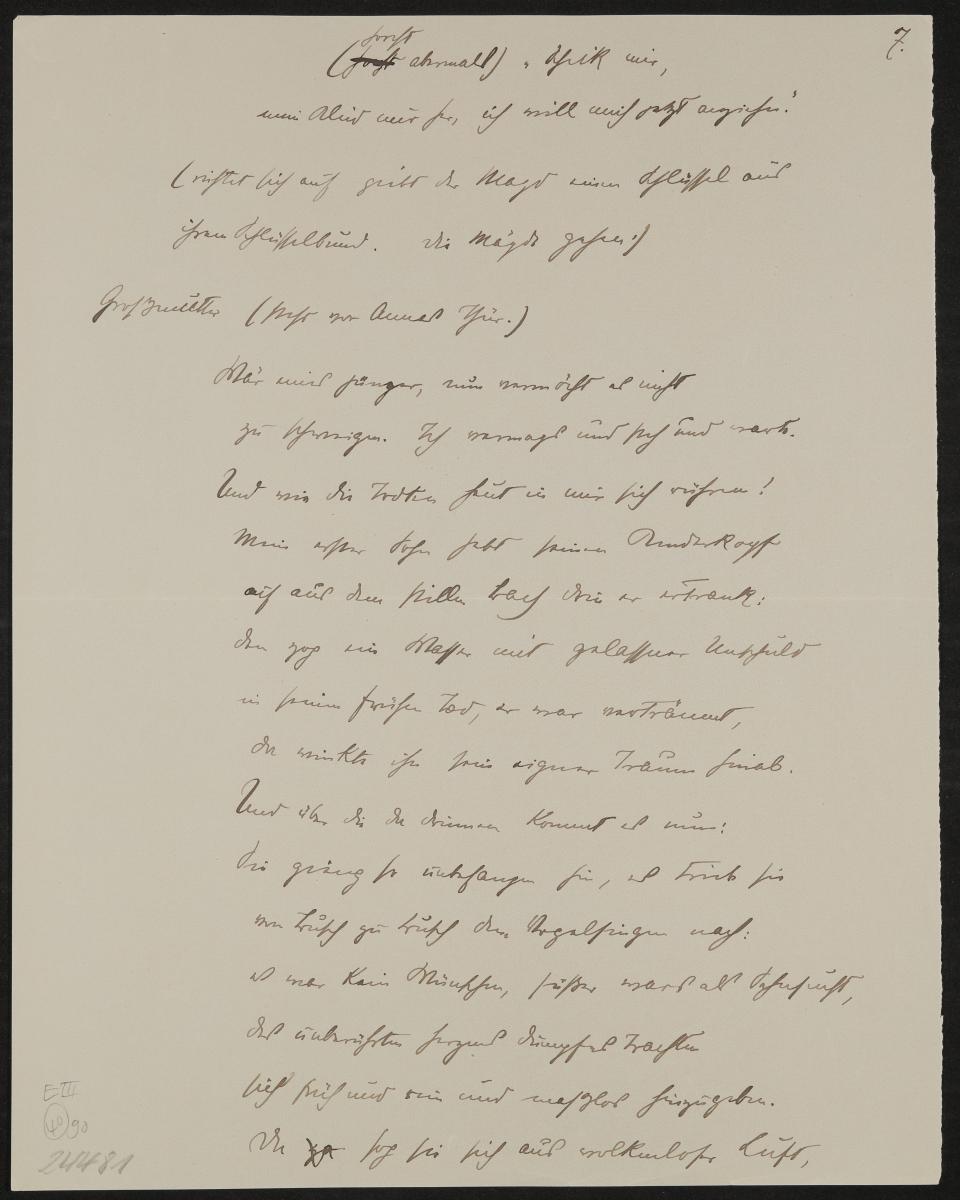 7.
horcht
(horcht abermals) „Schick mir,
mein Kleid nur her, ich will mich jetzt anziehn."
(richtet sich auf giebt der Magd einen Schlüssel aus
ihrem Schlüsselbund. Die Mägde gehen.)
Großmutter (steht vor Annas Thür.)
Wär eins jünger, nun vermöcht es nicht
zu schweigen. Ich vermags und steh und warte.
Und wie die Todten heut in mir sich rühren!
Mein erster Sohn hebt seinen Kinderkopf
auf aus dem stillen Bach drin er ertrank:
den zog ein Wasser mit gelassner Unschuld
in seinen frühen Tod, er war verträumt,
da winkte ihn sein eigner Traum hinab.
Und über die da drinnen kommt es nun:
Sie gieng so unbefangen hin, es trieb sie
von Busch zu Busch dem Vogelsingen nach:
es war kein Wünschen, süßer wars als Sehnsucht,
des unberührten Herzens dumpfes Trachten
sich früh und rein und maßlos hinzugeben.
Da sog sie sich aus wolkenloser Luft,
E III
90
24481